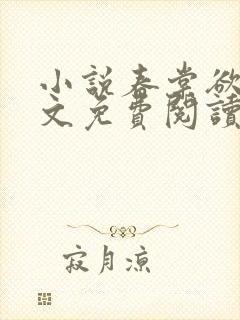 小說春棠欲
文免費閱讀
寂月涼